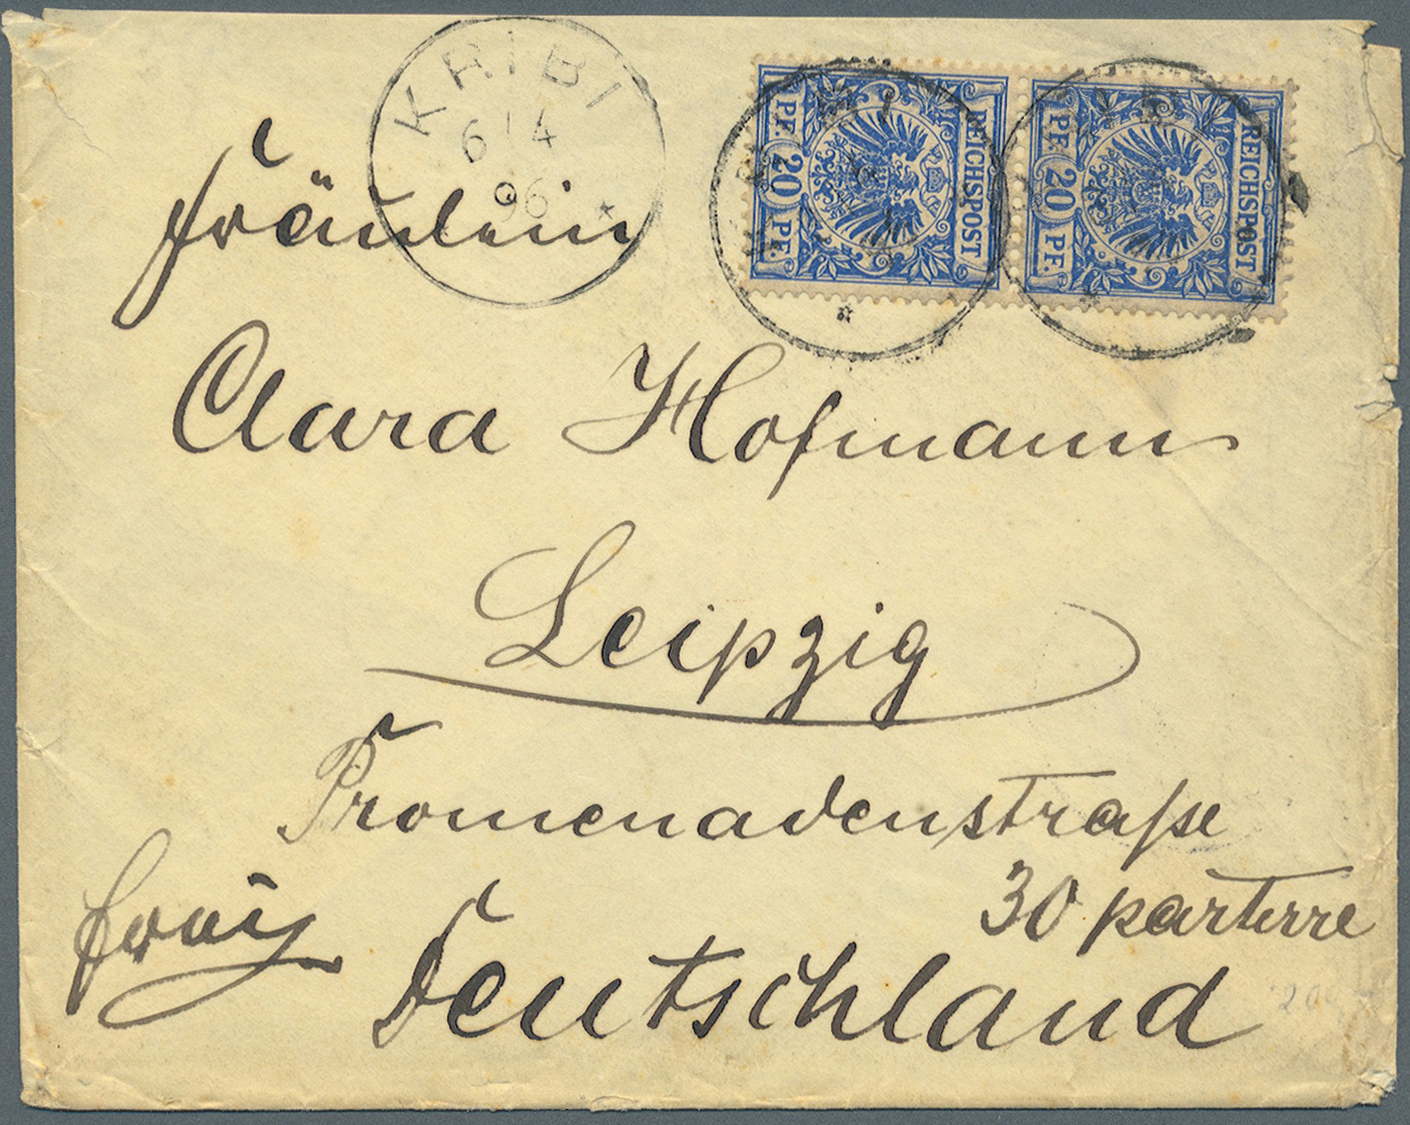 KRIBI
6/4
96
REICHSPOST
PF. 20 PF.
REICHSPOST
PF. 20 PF.
Fräulein
Clara Hofmann
Leipzig
Promenadenstraße
30 parterre
Deutschland